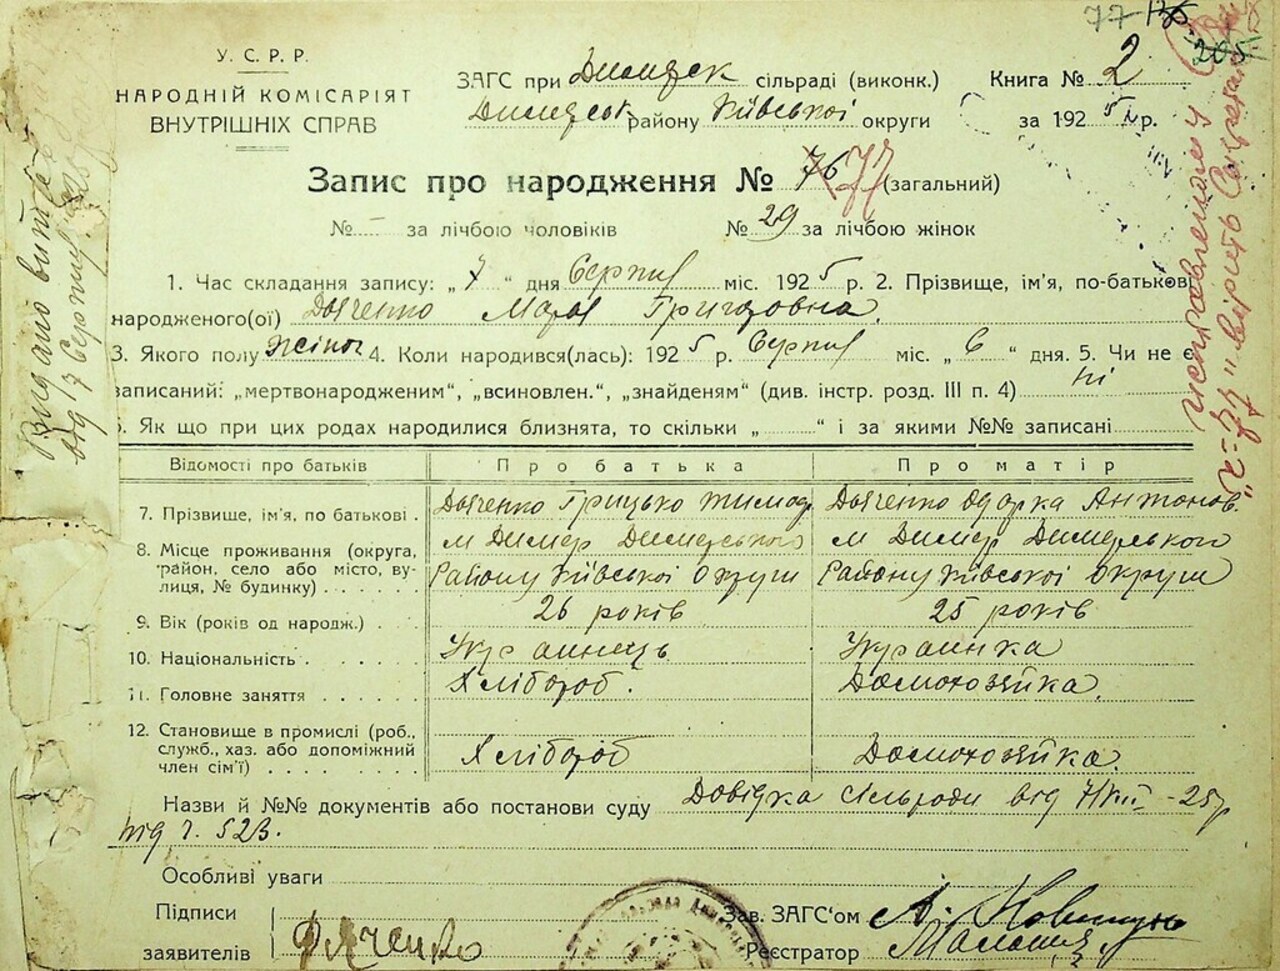 77
205
У. С. Р. Р.
НАРОДНІЙ КОМІСАРІЯТ
ВНУТРІШНІХ СПРАВ
ЗАГС при Димерск сільраді (виконк.)
Димерськ району Київської округи
Книга № 2
за 1925 р.
Запис про народження № 76 77 (загальний)
№ — за лічбою чоловіків № 29 за лічбою жінок
1. Час складання запису: „ 7 “ дня Серпня міс. 1925 р. 2. Прізвище, ім'я, по-батькові
народженого(ої) Дяченко Марія Григоровна.
3. Якого полу жіноч 4. Коли народився(лась): 1925 р. Серпня міс. „ 6 “ дня. 5. Чи не є
записаний: „мертвонародженим“, „всиновлен.“, „знайденям“ (див. інстр. розд. III п. 4) ні
6. Як що при цих родах народилися близнята, то скільки „ “ і за якими №№ записані
Відомості про батьків Про батька Про матір
7. Прізвище, ім'я, по батькові . Дяченко Грицько Тимоф. Дяченко Одарка Антонов.
8. Місце проживання (округа, район, село або місто, вулиця, № будинку) м Димер Димерського м Димер Димерського
Району Київської Округи Району Київської Округи
9. Вік (років од народж.) 26 років 25 років
10. Національність Українець Українка
11. Головне заняття Хлібороб. Домохозяйка.
12. Становище в промислі (роб., служб., хаз. або допоміжний член сім'ї) Хлібороб Домохозяйка.
Назви й №№ документів або постанови суду Довідка Сільради від 7/VIII-25р
під ч. 523.
Особливі уваги
Підписи
заявителів Дяченко
Зав. ЗАГС'ом
Реєстратор
Видано витяг
від 17 Серпня
исправленому
"х=77" вірить